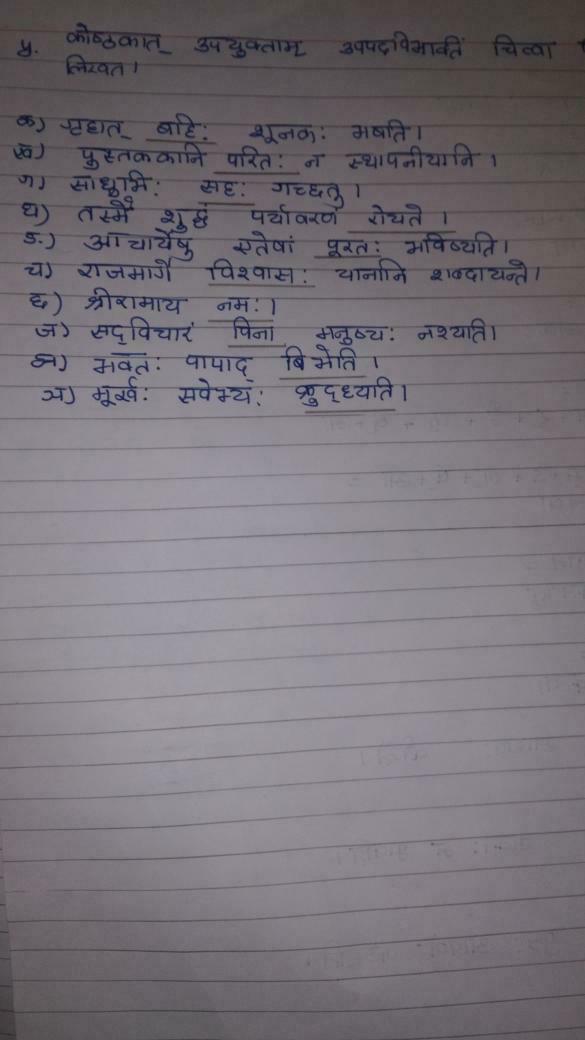 ५. कोष्ठकात् उपयुक्ताम् उपपदविभक्तिं चित्वा
लिखत।
क) गृहात् बहिः शूनकः भषति।
ख) पुस्तककानि परितः न स्थापनीयानि।
ग) साधुभिः सहः गच्छतु।
घ) तस्मै शुद्धं पर्यावरणं रोचते।
ङ) आचार्येषु एतेषां पूरतः भविष्यति।
च) राजमार्गे विश्वासः यानानि शब्दायन्ते।
छ) श्रीरामाय नमः।
ज) सद्विचारं विना मनुष्यः नश्यति।
झ) भवतः पापाद् बिभेति।
ञ) मूर्खः सवेभ्यः क्रुद्ध्यति।